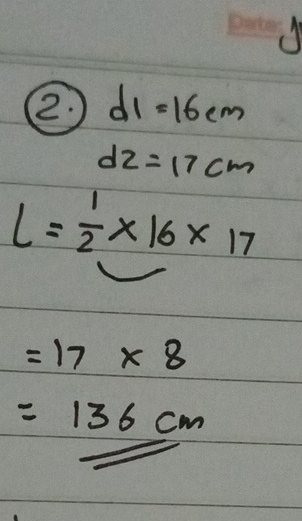 Date:
2. d1 = 16 cm
d2 = 17 cm
L = 1/2 × 16 × 17
= 17 × 8
= 136 cm